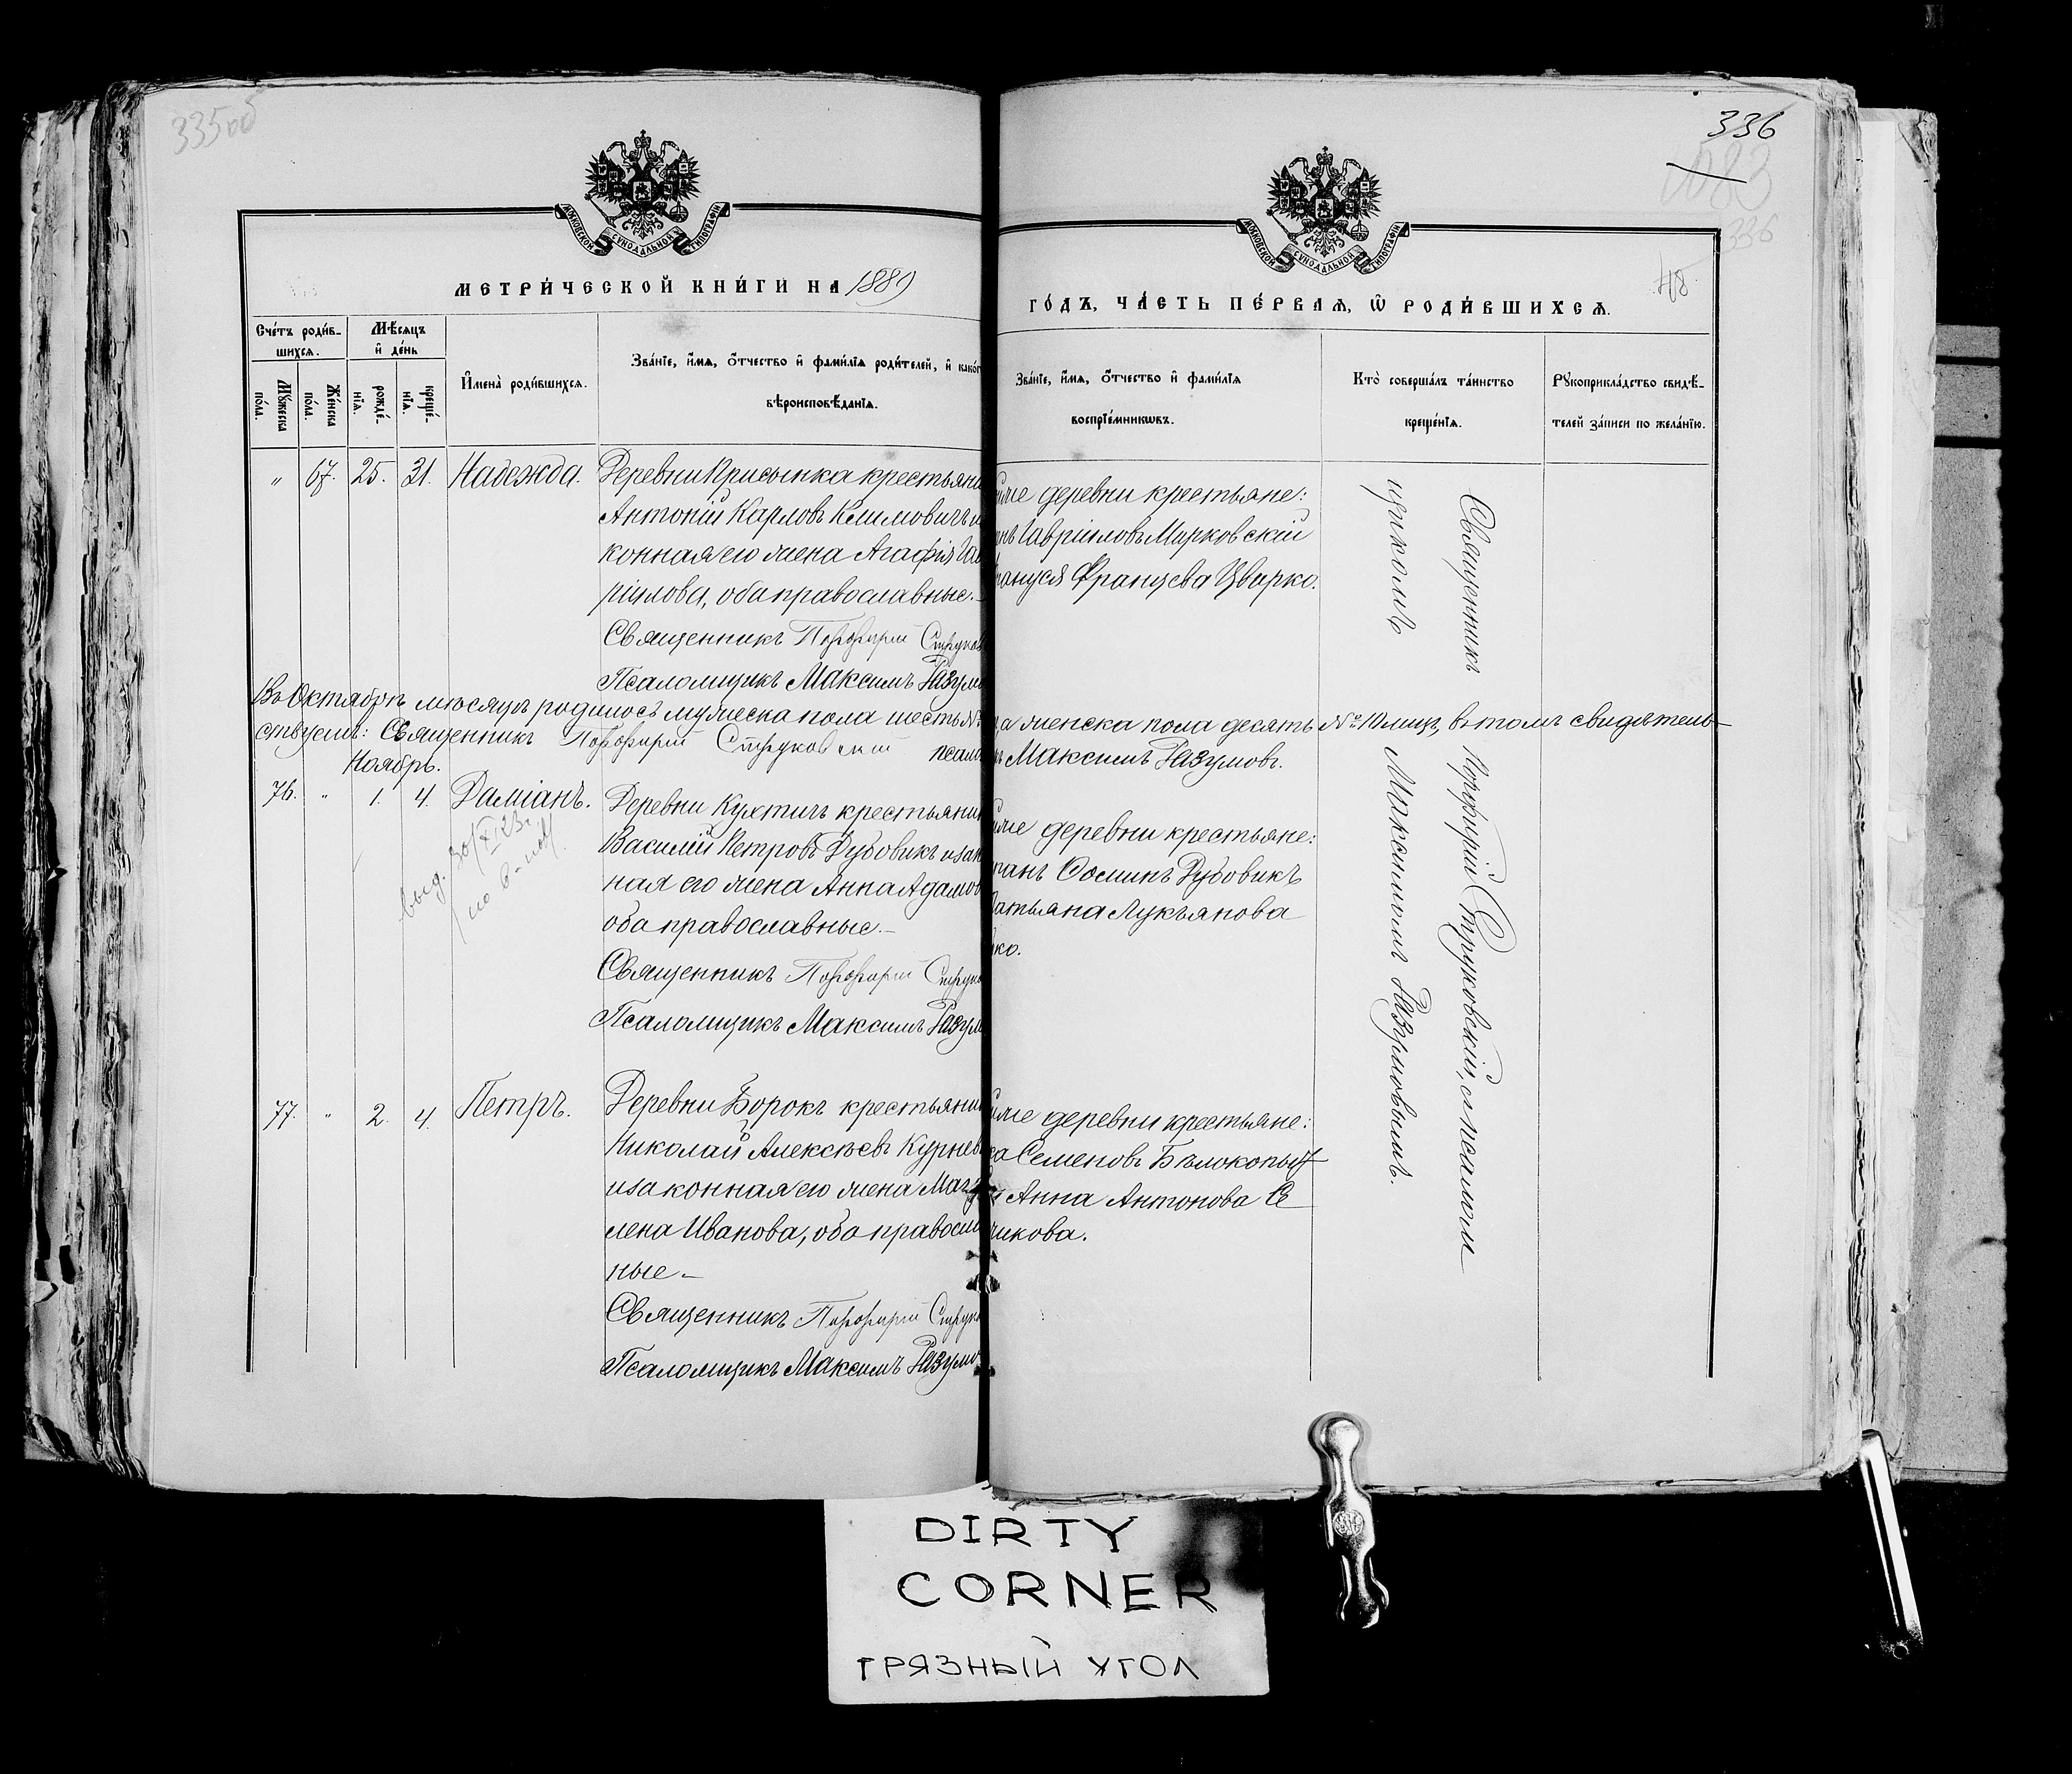 335об
336
336
48.
МОСКОВСКОЙ СѴНОДАЛЬНОЙ ТИПОГРАФІИ
МОСКОВСКОЙ СѴНОДАЛЬНОЙ ТИПОГРАФІИ
МЕТРИ́ЧЕСКОЙ КНИ́ГИ НА 1889
ГО́ДЪ, ЧА́СТЬ ПЕ́РВАѦ, Ѡ҆ РОДИ́ВШИХСѦ.
Сче́тъ роди́в-
шихсѧ.
Мѣ́сѧцъ
и҆ де́нь
Мꙋ́жеска
по́ла.
Же́нска
по́ла.
рожде́-
нїѧ.
креще́-
нїѧ.
И҆мена̀ роди́вшихсѧ.
Зва́нїе, и҆́мѧ, ѻ҆́тчество и҆ фами́лїѧ роди́телей, и҆ како́г
вѣроисповѣ́данїѧ.
Зва́нїе, и҆́мѧ, ѻ҆́тчество и҆ фами́лїѧ
воспрїе́мникѡвъ.
Кто̀ соверша́лъ та́инство
креще́нїѧ.
Рꙋкоприкла́дство свидѣ́-
телей за́писи по жела́нїю.
„ 67. 25. 31. Надежда.
Деревни Присынка крестьяни
Антоній Карловъ Климовичъ и
конная его жена Агафія Гав
ріилова, оба православные.–
Священникъ Порфирій Струков
Псаломщикъ Максимъ Разумо
же деревни крестьяне:
нъ Гавріиловъ Марковскій
Францева Цвирко.
Въ Октябрѣ мѣсяцѣ родилось мужеска пола шесть № а женска пола десять № 10 лицъ, въ томъ свидѣтель–
ствуемъ: Священникъ Порфирій Струковскій псало ъ Максимъ Разумовъ.
Ноябрь.
76. „ 1. 4. Даміанъ.
выд. 30/XI 23г.
Деревни Куктичъ крестьянин
Василій Петровъ Дубовикъ и зак
ная его жена Анна Адамов
оба православные.–
Священникъ Порфирій Струко
Псаломщикъ Максимъ Разум
же деревни крестьяне:
Ѳоминъ Дубовикъ
Татьяна Лукьянова
ко.
77. „ 2. 4. Петръ.
Деревни Борокъ крестьянин
Николай Алексѣевъ Курнев
и законная его жена Магд
лена Иванова, оба правосла
ные–
Священникъ Порфирій Струко
Псаломщикъ Максимъ Разумо
же деревни крестьяне:
Семеновъ Бѣлокопыт
и Анна Антонова Се
чикова.
Священникъ Порфирій Струковскій, съ псалом–
щикомъ Максимомъ Разумовымъ.
DIRTY
CORNER
ГРЯЗНЫЙ УГОЛ